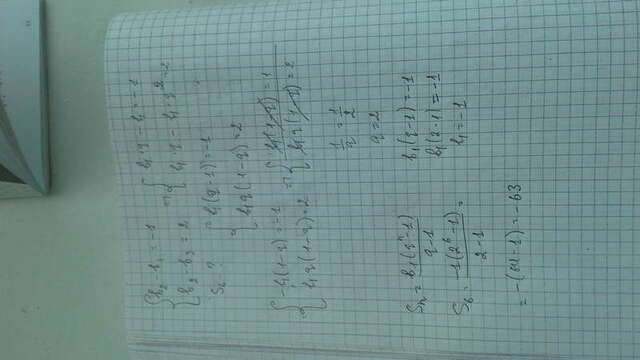 { b₂ - b₁ = -1
{ b₂ - b₃ = 2
=> { b₁q - b₁ = -1
{ b₁q - b₁q² = 2
S₆ - ?
= { b₁(q-1) = -1
{ b₁q(1-q) = 2
{ -b₁(1-q) = -1
{ b₁q(1-q) = 2
=> { b₁(1-q) = 1
{ b₁q(1-q) = 2
1/q = 1/2
q = 2
b₁(q-1) = -1
b₁(2-1) = -1
b₁ = -1
Sₙ = b₁(qⁿ-1)/q-1
S₆ = -1(2⁶-1)/2-1 =
= -(64-1) = -63